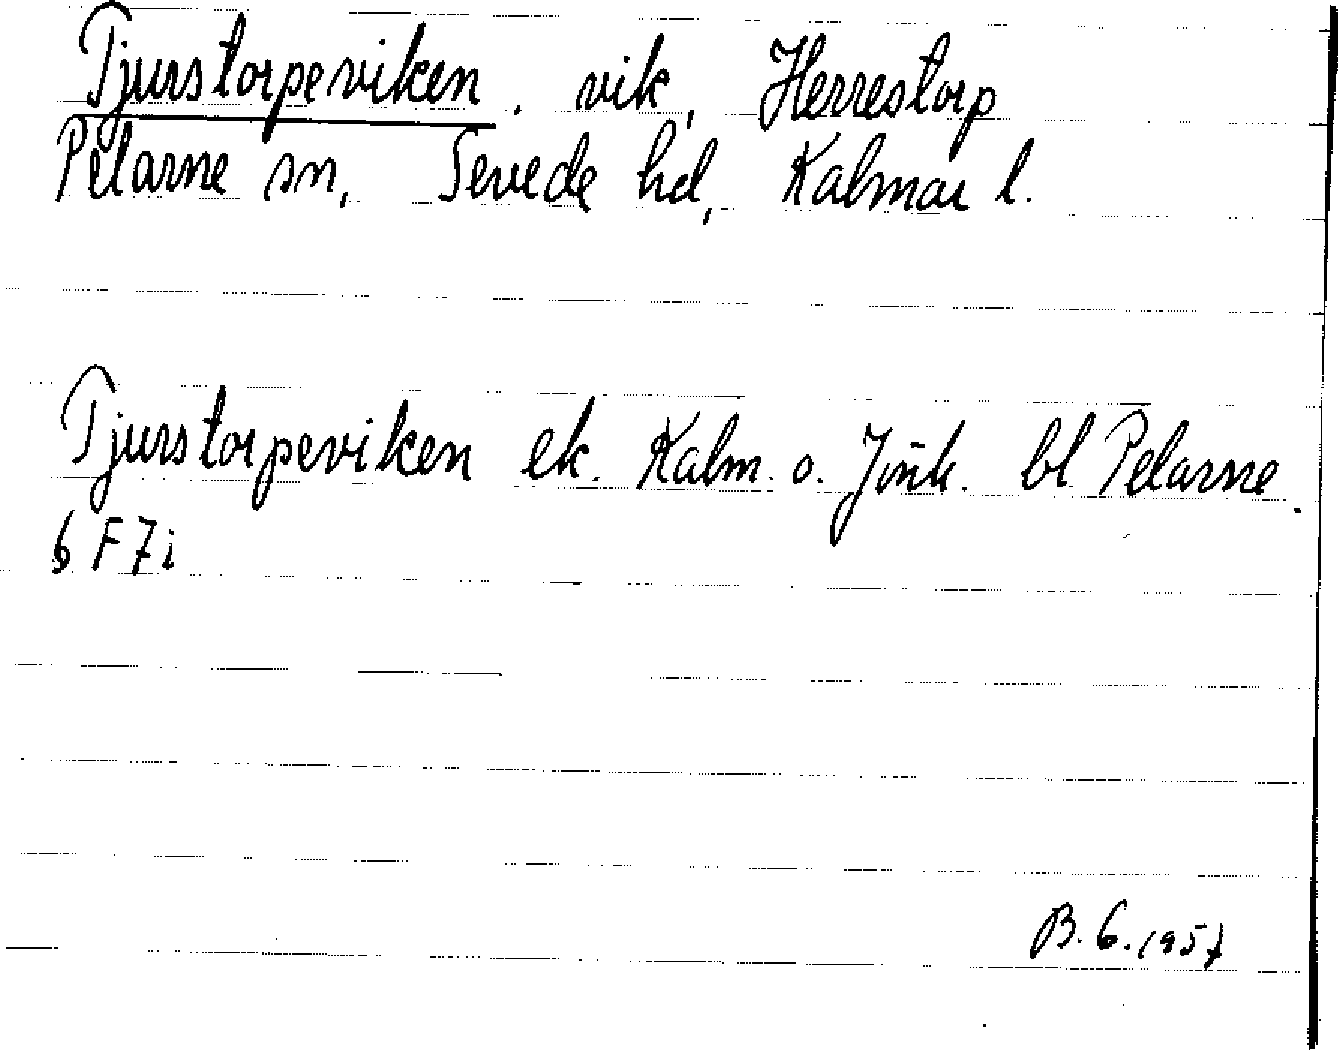 Tjurstorpeviken, vik, Herrestorp
Pelarne sn, Sevede hd, Kalmar l.
Tjurstorpeviken ek. Kalm. o. Jönk. bl Pelarne.
6 F 7i
B. G. 1957